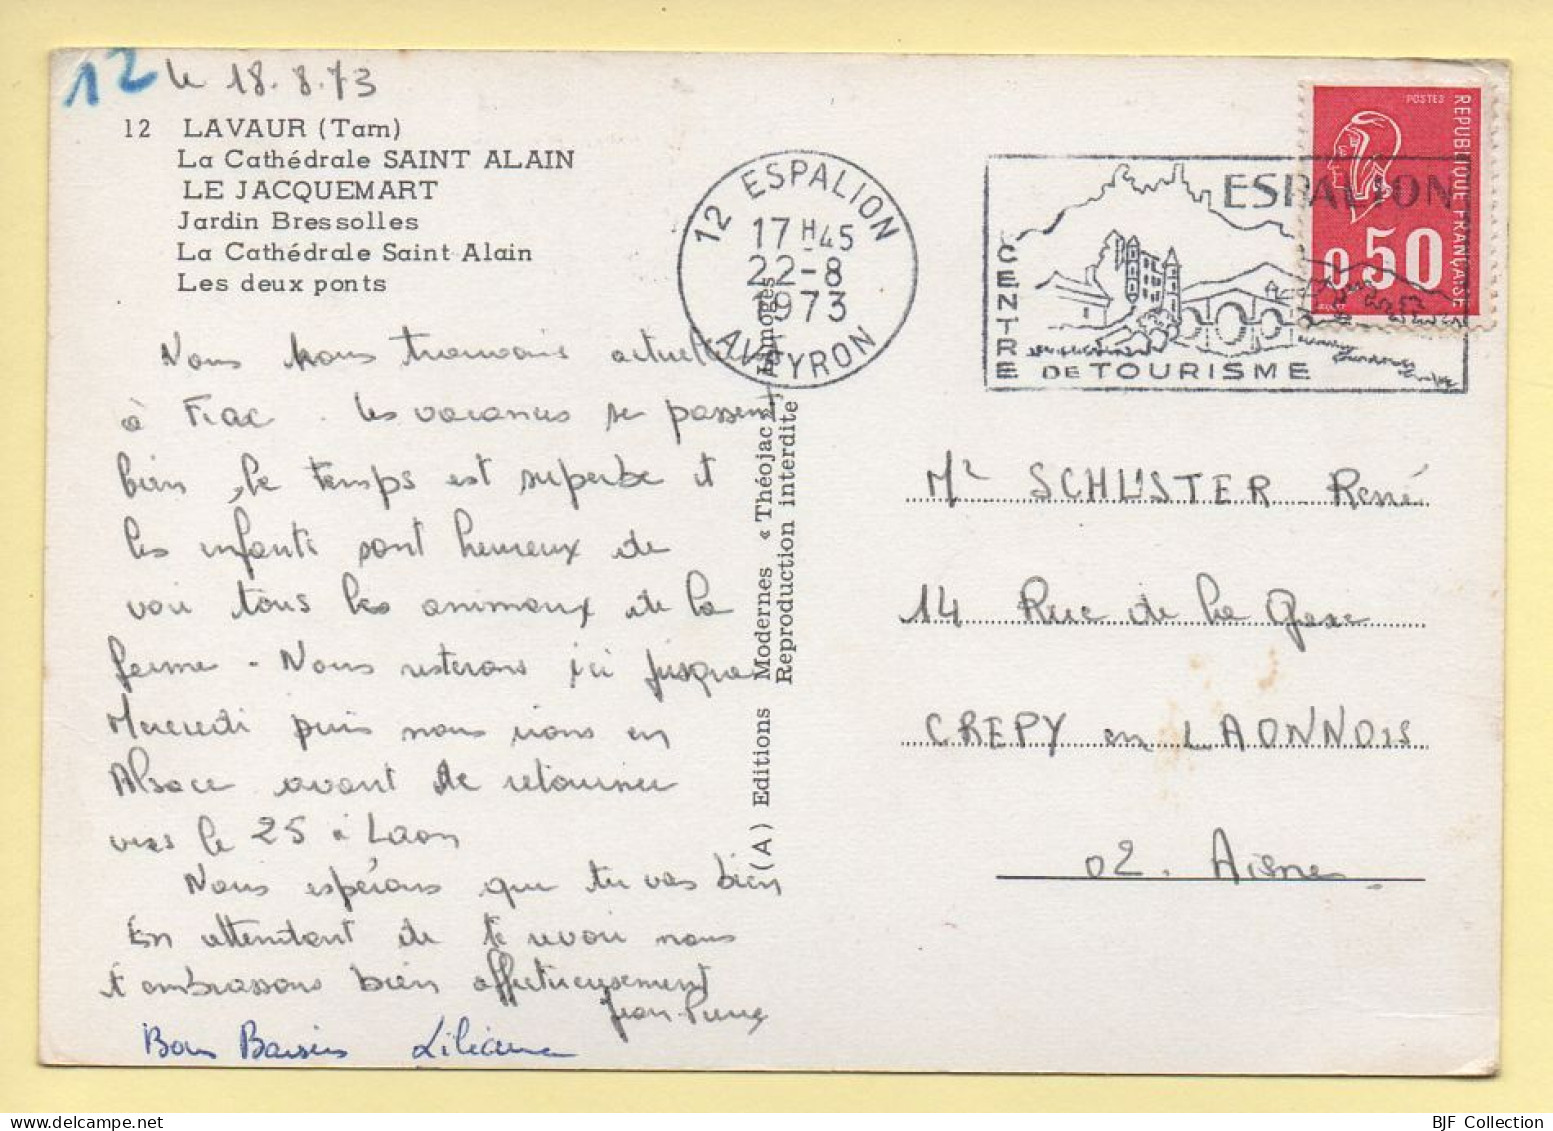 12 le 18.8.73
12 LAVAUR (Tarn)
La Cathédrale SAINT ALAIN
LE JACQUEMART
Jardin Bressolles
La Cathédrale Saint Alain
Les deux ponts
Nous nous trouvons actuel
à Fiac. les vacances se passent
bien, le temps est superbe et
les enfants sont heureux de
voir tous les animaux de la
ferme - Nous resterons ici jusque
Mercredi puis nous irons en
Alsace avant de retourner
vers le 25 à Laon
Nous espérons que tu vas bien
En attendant de te revoir nous
t'embrassons bien affectueusement
Jean-Pierre
Bons Baisers Liliane
(A) Editions Modernes « Théojac » Limoges
Reproduction interdite
12 ESPALION
17H45
22-8
1973
AVEYRON
ESPALION
CENTRE
DE TOURISME
POSTES
REPUBLIQUE FRANÇAISE
0,50
Mr SCHUSTER René
14 Rue de la
CREPY en LAONNOIS
02. Aisne
BJF Collection